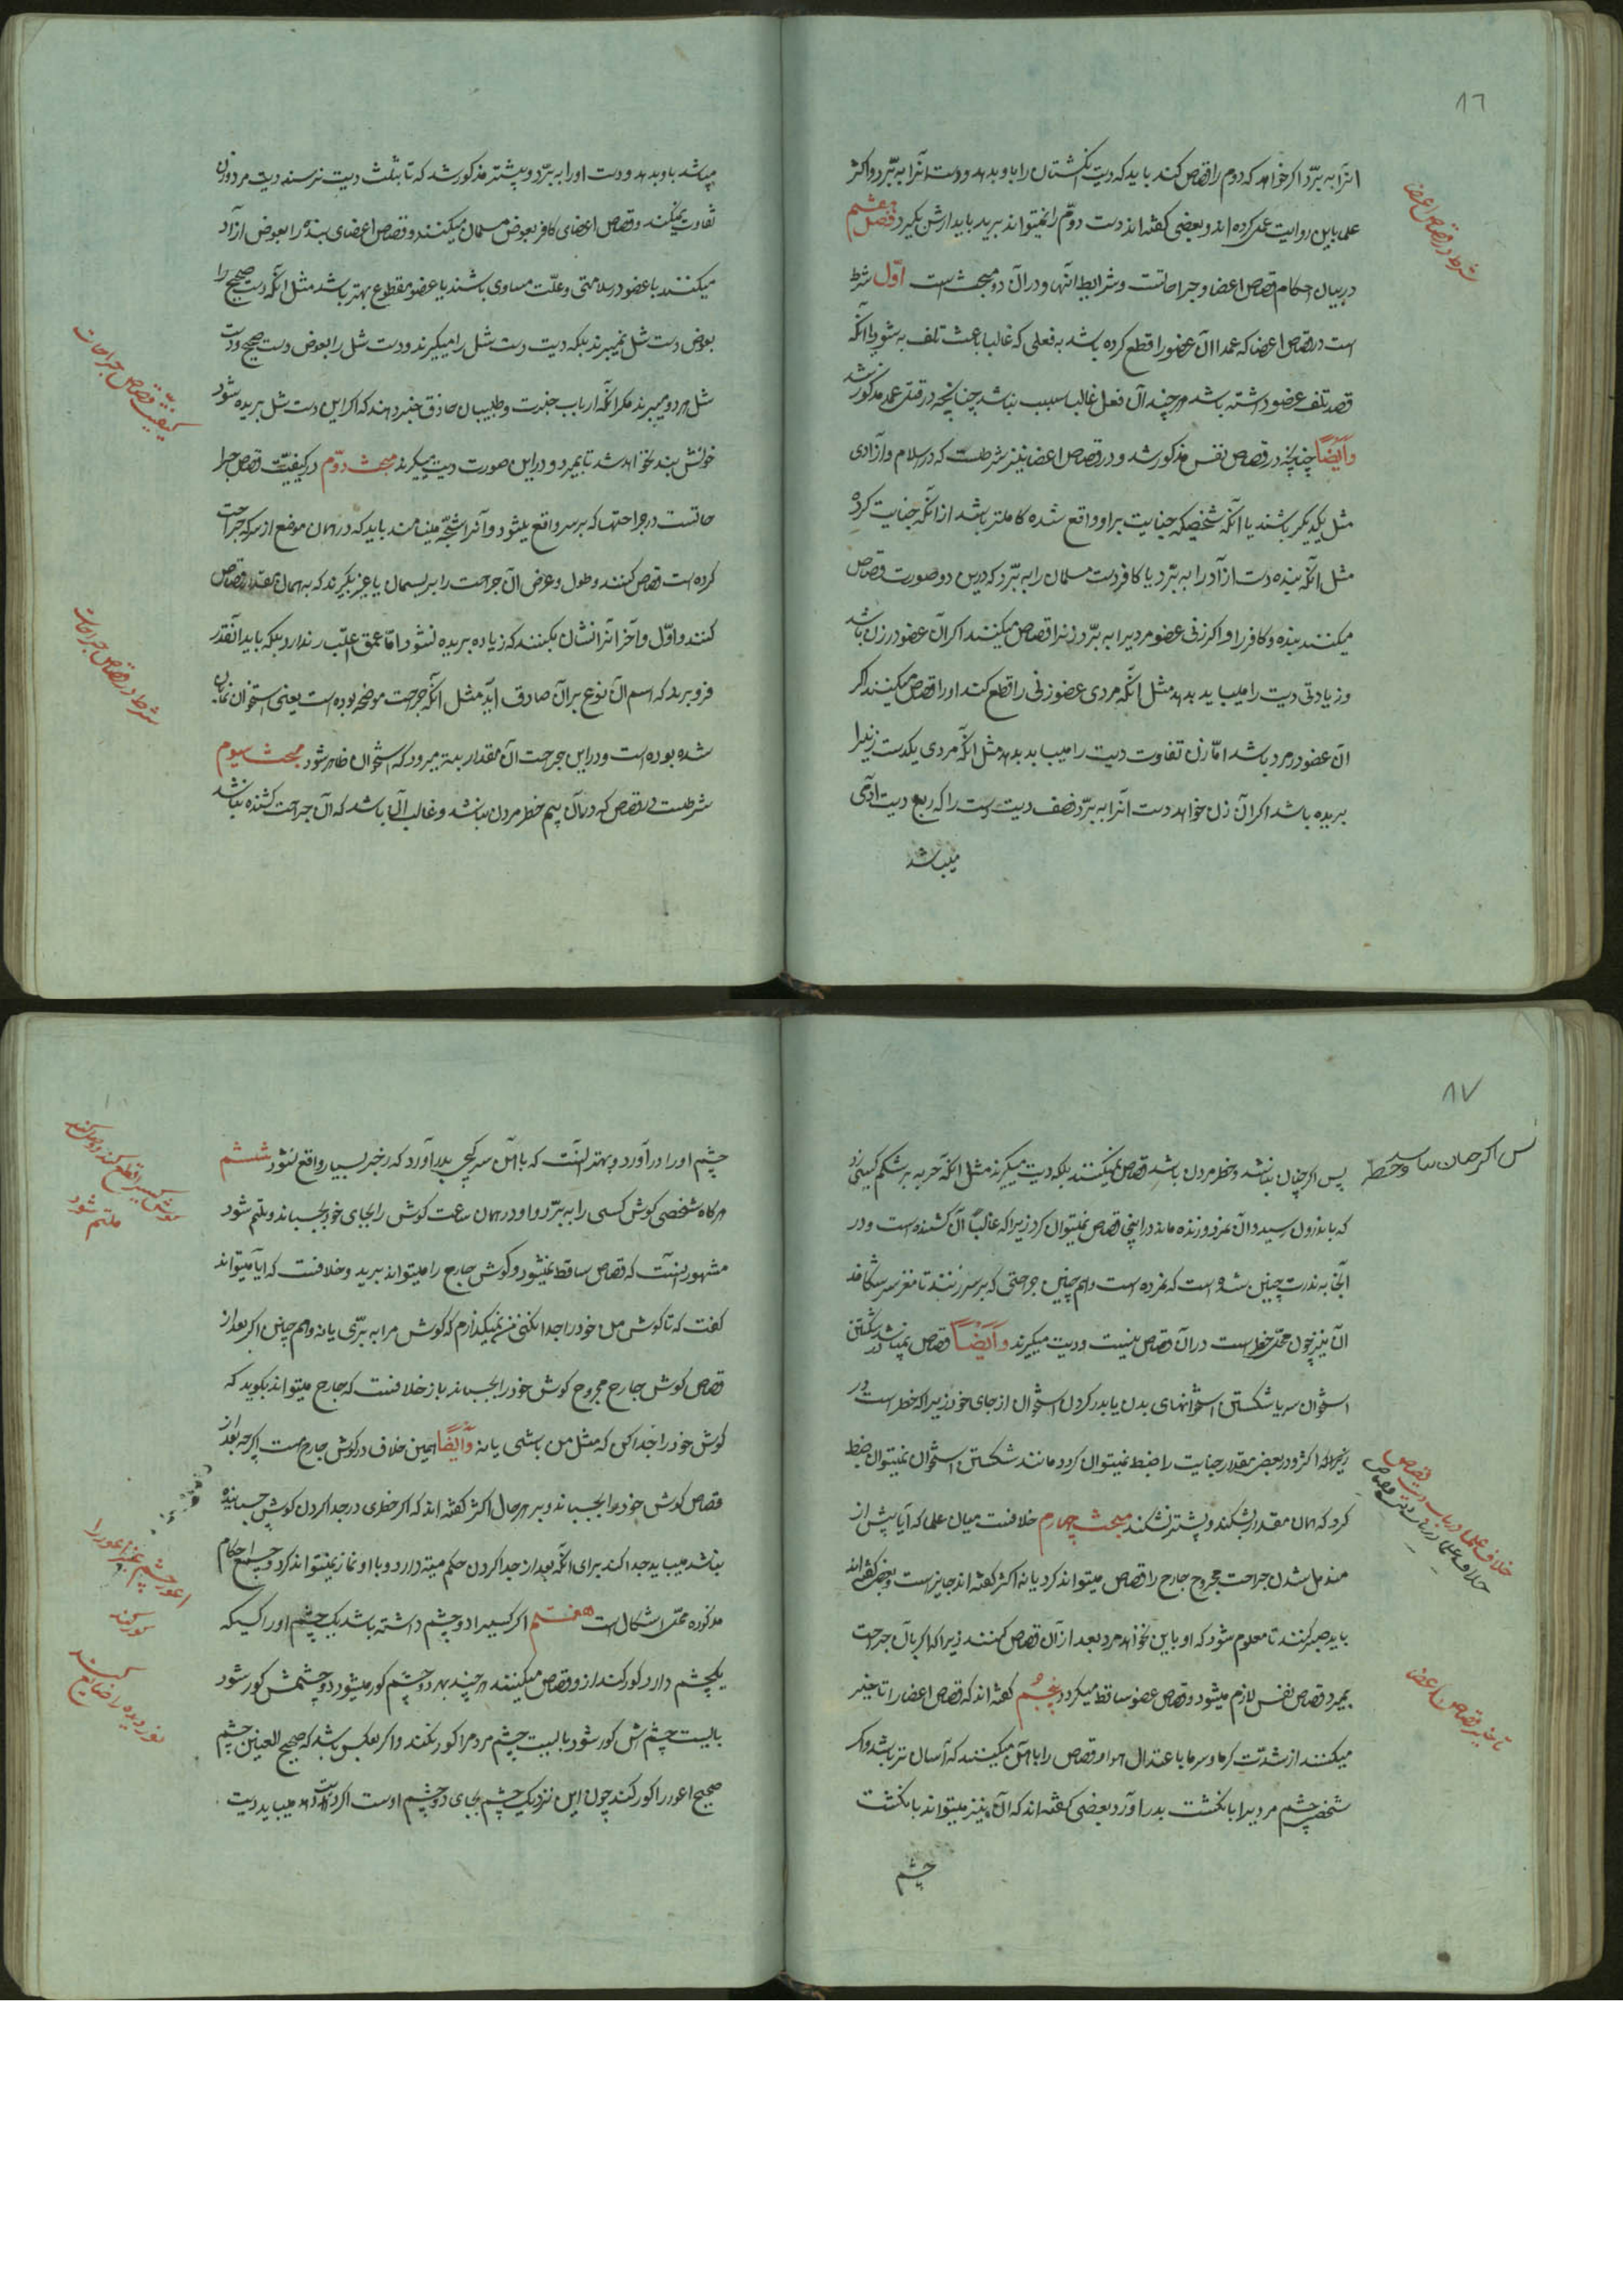 ٨٦
انرا به برّد اکر خواهد که دوم را قصاص کند باید که دیت انکشتان را باو بدهد و دست انرا به برّد و اکثر
علما باین روایت عمل کرده اند و بعضی کفته اند دست دوّم را نمیتواند برید باید ارش بکیرد فصل هشتم
در بیان احکام قصاص اعضا و جراحاتست و شرایط انها و در آن دو مبحث است اوّل شرط
است در قصاص اعضا که عمدا آن عضو را قطع کرده باشد به فعلی که غالبا باعث تلف به شود یا انکه
قصد تلف عضو داشته باشد هر چند آن فعل غالبا سبب نباشد چنانچه در قتل عمد مذکور شد
وَاَیْضاً چنانچه در قصاص نفس مذکور شد و در قصاص اعضا نیز شرطست که در اسلام و آزادی
مثل یکدیکر باشند یا انکه شخصیکه جنایت بر او واقع شده کاملتر باشد از انکه جنایت کرده
مثل انکه بنده دست ازاد را به برّد یا کافر دست مسلمان را به برّد که درین دو صورت قصاص
میکنند بنده و کافر را و اکر زنی عضو مردیرا به برّد زنرا قصاص میکنند اکر آن عضو در زن باشد
و زیادتی دیت را میباید بدهد مثل انکه مردی عضو زنی را قطع کند او را قصاص میکنند اکر
آن عضو در مرد باشد امّا زن تفاوت دیت را میباید بدهد مثل انکه مردی یکدست زنیرا
بریده باشد اکر آن زن خواهد دست آنرا به برّد نصف دیت دست را که ربع دیت ادمی
میباشد
شرط در قصاص اعضا
میباشد باو بدهد و دست او را به برّد و پیشتر مذکور شد که تا بثلث دیت نرسد دیت مرد و زن
تفاوت نمیکند و قصاص اعضای کافر بعوض مسلمان میکنند و قصاص اعضای بنده را بعوض ازاد
میکنند با عضو در سلامتی و علّت مساوی باشند یا عضو مقطوع بهتر باشد مثل انکه دست صحیح را
بعوض دست شل نمیبرند بلکه دیت دست شل را میکیرند و دست شل را بعوض دست صحیح و دست
شل هر دو میبرند مکر انکه ارباب خبرت و طبیبان حاذق خبر دهند که اکر این دست شل بریده شود
خونش بند نخواهد شد تا بمیرد و در این صورت دیت میکیرند مبحث دوّم در کیفیّت قصاص جرا
حاتست در جراحتها که بر سر واقع میشود و آنرا شجّه مینامند باید که در همان موضع از سر که جراحت
کرده است قصاص کنند و طول و عرض آن جراحت را بریسمان یا غیر بکیرند که به همان مقدار قصاص
کنند و اوّل و آخر انرا نشان بکنند که زیاده بریده نشود امّا عمق اعتبار ندارد بلکه باید انقدر
فرو برند که اسم آن نوع بر آن صادق اید مثل انکه جراحت موضحه بوده است یعنی استخوان نمایان
شده بوده است و در این جراحت آن مقدار بیشتر میرود که استخوان ظاهر شود مبحث سیوم
شرطست در قصاص که در آن بیم خطر مردن نباشد و غالب آن باشد که آن جراحت کشنده نباشد
کیفیّت قصاص جراحات
شرط در قصاص جراحات
٨٧
پس اکر چنان نباشد و خطر مردن باشد قصاص نمیکنند بلکه دیت میکیرند مثل انکه حربه بر شکم کسی زد
که باندرون رسید و آن نمرد و زنده ماند در اینجا قصاص نمیتوان کرد زیرا که غالباً آن کشنده است و در
آنجا به ندرت چنین شده است که نمرده است و هم چنین جراحتی که بر سر زنند تا مغز سر شکافد
آن نیز چون محلّ خطر است در آن قصاص نیست و دیت میکیرند وَاَیضاً قصاص نمیباشد در شکستن
استخوان سر یا شکستن استخوانهای بدن یا بدر کردن استخوان از جای خود زیرا که خطر است در
اکثر و در بعضی مقدار جنایت را ضبط نمیتوان کرد مانند شکستن استخوان نمیتوان ضبط
کرد که همان مقدار بشکند و بیشتر نشکند مبحث چهارم خلافست میان علما که آیا پیش از
مندمل شدن جراحت مجروح جارح را قصاص میتواند کرد یا نه اکثر کفته اند جایز است و بعضی کفته اند
باید صبر کنند تا معلوم شود که او باین نخواهد مرد بعد از آن قصاص کنند زیرا که اکر بآن جراحت
بمیرد قصاص نفس لازم میشود و قصاص عضو ساقط میکردد پنجم کفته اند که قصاص اعضا را تاخیر
میکنند از شدّت کرما و سرما با عتدال هوا و قصاص را باهن میکنند که آسان تر باشد و اکر
شخصی چشم مردیرا بانکشت بدر آورد بعضی کفته اند که آن نیز میتواند بانکشت
چشم
خلاف علما در باب دیت قصاص
خلاف علما در باب دیت قصاص
تاخیر قصاص اعضا
چشم او را در آورد و بهتر انست که باهن سر کجی بدر آورد که زجر بسیار واقع نشود ششم
هر کاه شخصی کوش کسی را به برّد و او در همان ساعت کوش را بجای خود بچسباند و ملتئم شود
مشهور انست که قصاص ساقط نمیشود و کوش جارح را میتواند برید و خلافست که ایا میتواند
کفت که تا کوش من خود را جدا نکنی من نمیکذارم که کوش مرا به برّی یا نه و هم چنین اکر بعد از
قصاص کوش جارح مجروح کوش خود را بچسباند باز خلافست که جارح میتواند بکوید که
کوش خود را جدا کن که مثل من باشی یا نه وَاَیضاً همین خلاف در کوش جارح هست اکر چه بعد از
قصاص کوش خود را بچسباند و بر هر حال اکثر کفته اند که اکر خطری در جدا کردن کوش چسبانیده
نباشد میباید جدا کند برای انکه بعد از جدا کردن حکم میته دارد و با او نماز نمیتواند کرد و جمیع احکام
مذکوره محلّ اشکال است هفتم اکر کسیرا دو چشم داشته باشد یک چشم او را کسیکه
یکچشم دارد کور کند از و قصاص میکنند هر چند بهر دو چشم کور میشود دو چشمش کور شود
بایست چشم اش کور شود بایست چشم مردم را کور نکند و اکر بعکس باشد که صحیح العینین چشم
صحیح اعور را کور کند چون این نزد یک چشم بجای دو چشم اوست اکر دیت دهد میباید دیت
کوش کسیرا قطع کند و وصل کند
ملتئم شود
اعور چشم غیر اعور را
کور کند